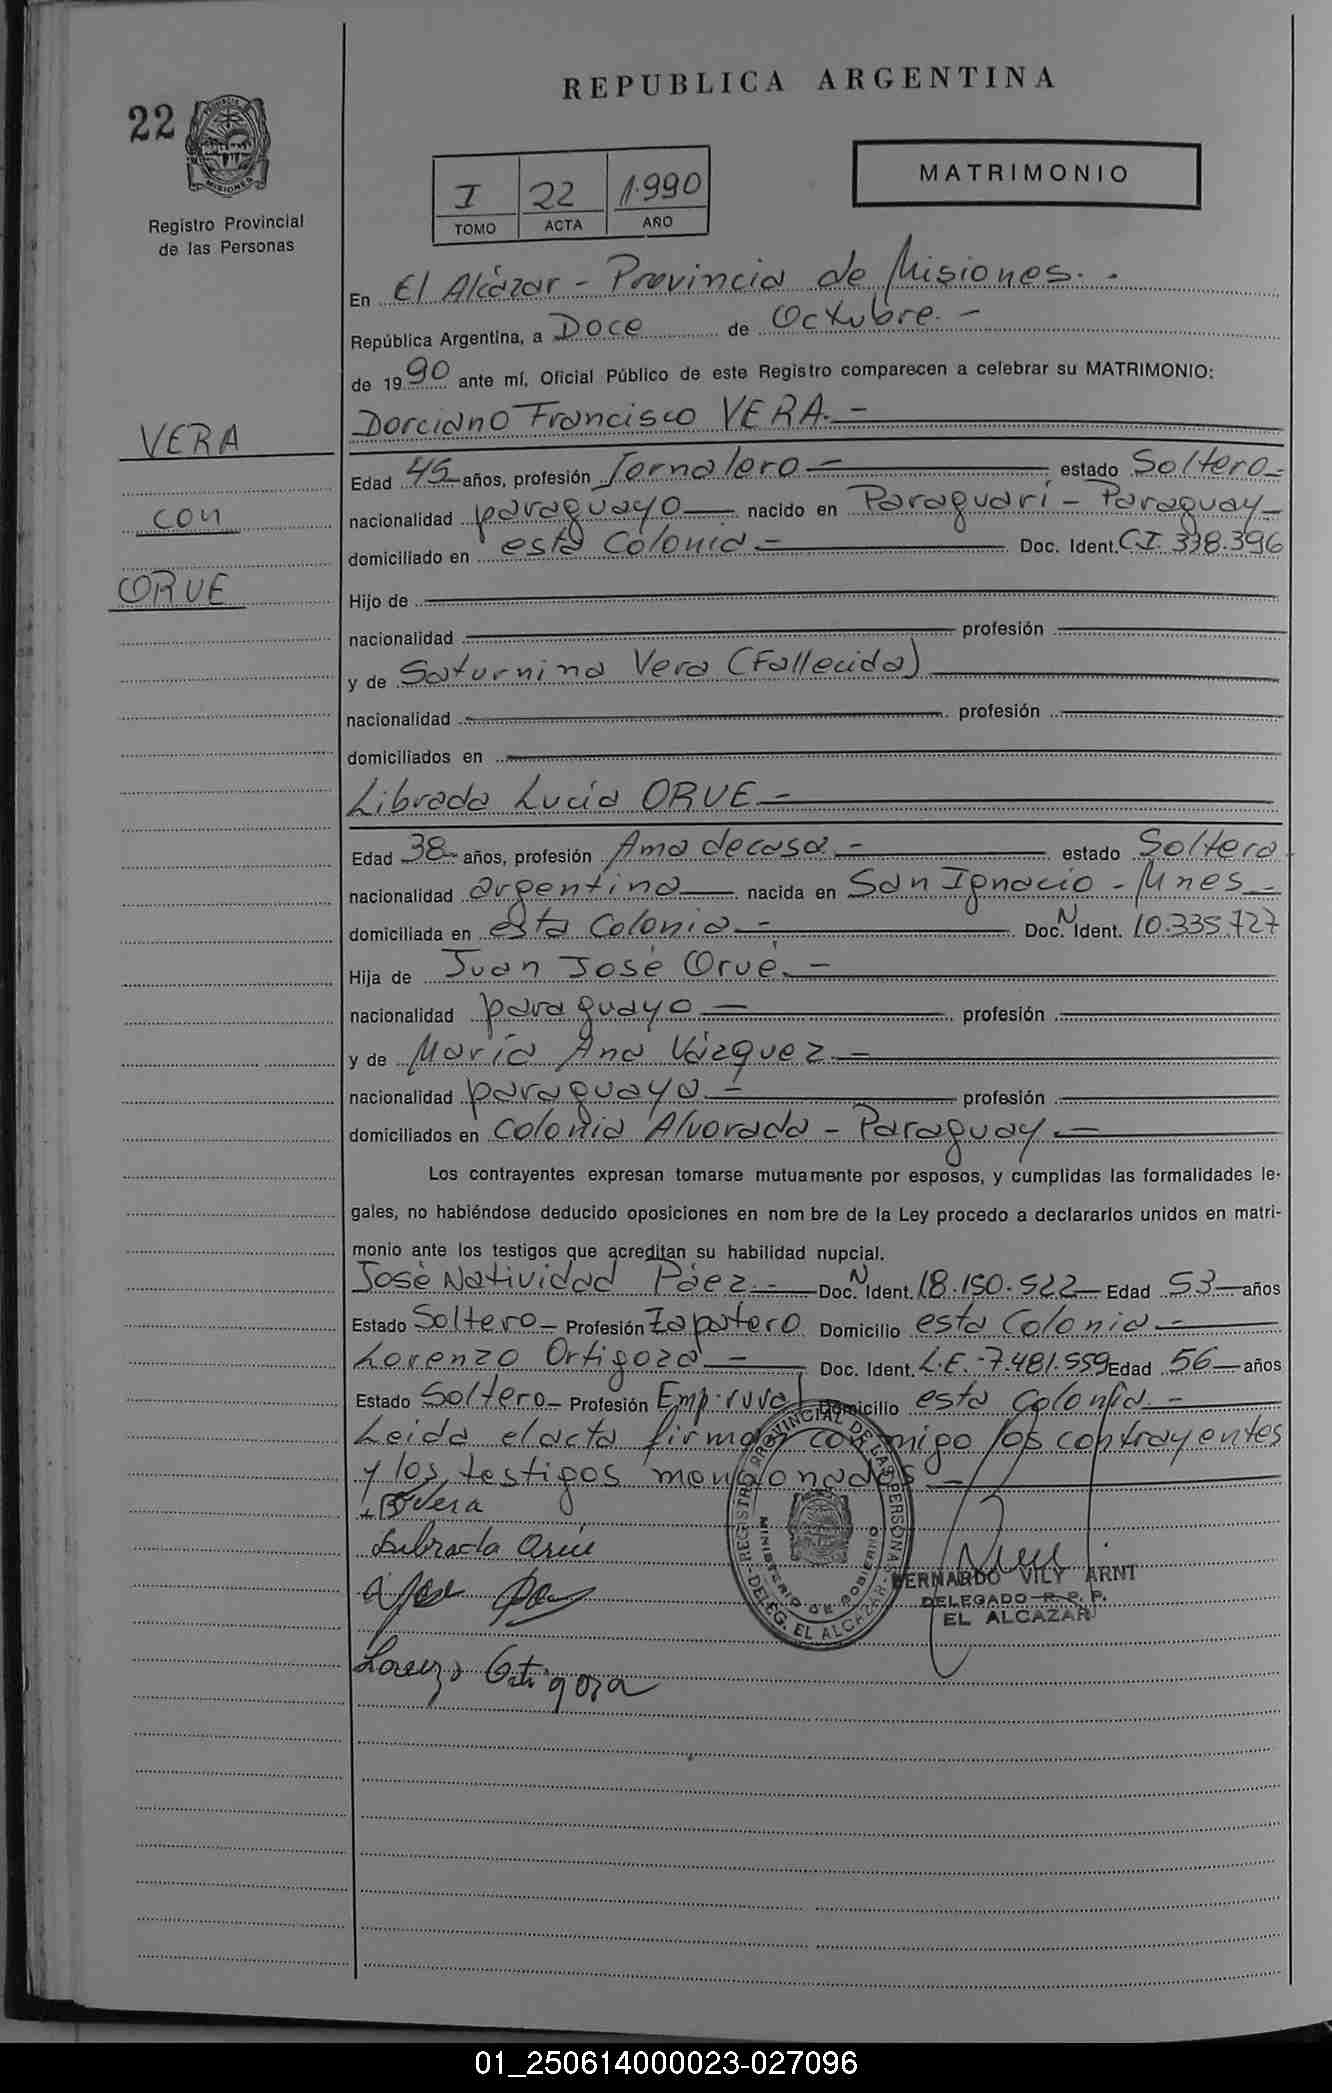 REPUBLICA ARGENTINA
22
PROVINCIA DE MISIONES
Registro Provincial
de las Personas
I 22 1.990
TOMO ACTA AÑO
MATRIMONIO
En El Alcázar - Provincia de Misiones. -
República Argentina, a Doce de Octubre. -
de 1990 ante mí, Oficial Público de este Registro comparecen a celebrar su MATRIMONIO:
VERA
con
ORUE
Dorciano Francisco VERA. -
Edad 45 años, profesión Jornalero - estado Soltero -
nacionalidad paraguayo nacido en Paraguarí - Paraguay -
domiciliado en esta Colonia - Doc. Ident. C.I. 338.396
Hijo de
nacionalidad profesión
y de Saturnina Vera (Fallecida)
nacionalidad profesión
domiciliados en
Librada Lucía ORUE -
Edad 38 años, profesión Ama de casa - estado Soltera
nacionalidad argentina nacida en San Ignacio - Mnes -
domiciliada en esta Colonia - Doc. N Ident. 10.335.727
Hija de Juan José Orué. -
nacionalidad paraguayo - profesión
y de María Ana Vázquez -
nacionalidad paraguaya - profesión
domiciliados en Colonia Alvorada - Paraguay -
Los contrayentes expresan tomarse mutuamente por esposos, y cumplidas las formalidades le-
gales, no habiéndose deducido oposiciones en nom bre de la Ley procedo a declararlos unidos en matri-
monio ante los testigos que acreditan su habilidad nupcial.
José Natividad Páez. - Doc. N Ident. 18.150.522 Edad 53 años
Estado Soltero - Profesión Zapatero Domicilio esta Colonia -
Lorenzo Ortigoza - Doc. Ident. L.E. - 7.481.559 Edad 56 años
Estado Soltero - Profesión Emp. rural Domicilio esta Colonia. -
Leida el acta firman conmigo los contrayentes
y los testigos mencionados -
Vera
Librada Orue
Jose
Lorenzo Ortigoza
REGISTRO PROVINCIAL DE LAS PERSONAS
MINISTERIO DE GOBIERNO
DELEG. EL ALCAZAR
BERNARDO VILY ARNT
DELEGADO R. P. P.
EL ALCAZAR
01_250614000023-027096